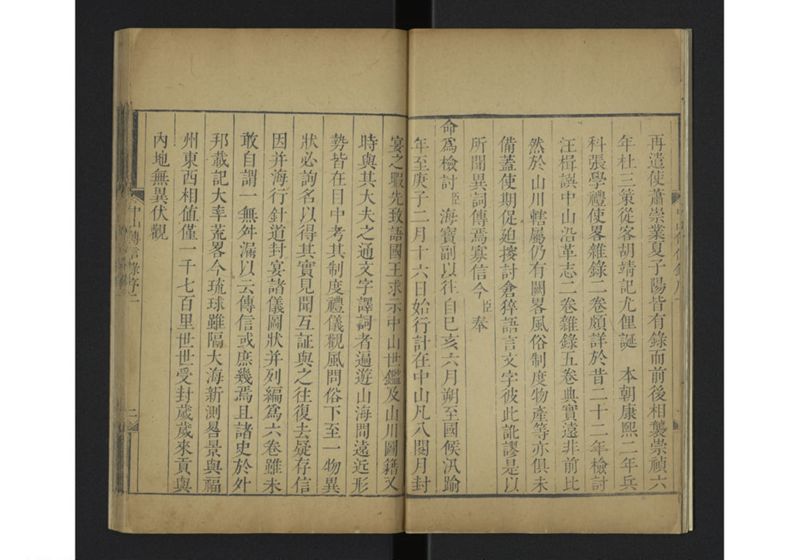 再遣使蕭崇業夏子陽皆有錄而前後相襲崇禎六
年杜三策從客胡靖記尤俚誕 本朝康熙二年兵
科張學禮使畧雜錄二卷頗詳於昔二十二年檢討
汪楫譔中山沿革志二卷雜錄五卷典實遠非前比
然於山川轄屬仍有闕畧風俗制度物產等亦俱未
備蓋使期促迫搜討倉猝語言文字彼此訛謬是以
所聞異詞傳焉寡信今臣奉
命爲檢討臣海寶副以往自己亥六月朔至國候汛踰
年至庚子二月十六日始行計在中山凡八閱月封
宴之暇先致語國王求示中山世鑑及山川圖籍又
時與其大夫之通文字譯詞者遍遊山海間遠近形
勢皆在目中考其制度禮儀觀風問俗下至一物異
狀必詢名以得其實見聞互証與之往復去疑存信
因并海行針道封宴諸儀圖狀并列編爲六卷雖未
敢自謂一無舛漏以云傳信或庶幾焉且諸史於外
邦載記大率荒畧今琉球雖隔大海新測晷景與福
州東西相値僅一千七百里世世受封歲歲來貢與
內地無異伏觀
中山傳信錄序二
二